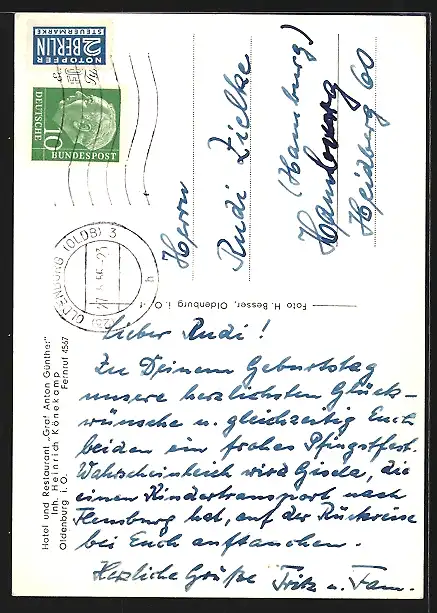 NOTOPFER
2 BERLIN
STEUERMARKE
DEUTSCHE
10
BUNDESPOST
OLDENBURG (OLDB) 3
Herrn
Rudi Zielke
(Hamburg)
Hamburg
Heidberg 60
Foto H. Besser, Oldenburg i. O.
Hotel und Restaurant „Graf Anton Günther"
Inh. Heinrich Könekamp
Oldenburg i. O. Fernruf 4567
Lieber Rudi!
Zu Deinem Geburtstag
unsere herzlichsten Glück-
wünsche u. gleichzeitig Euch
beiden ein frohes Pfingstfest.
Wahrscheinlich wird Gisela, die
einen Kindertransport nach
Flensburg hat, auf der Rückreise
bei Euch auftauchen.
Herzliche Grüße Fritz u. Fam.